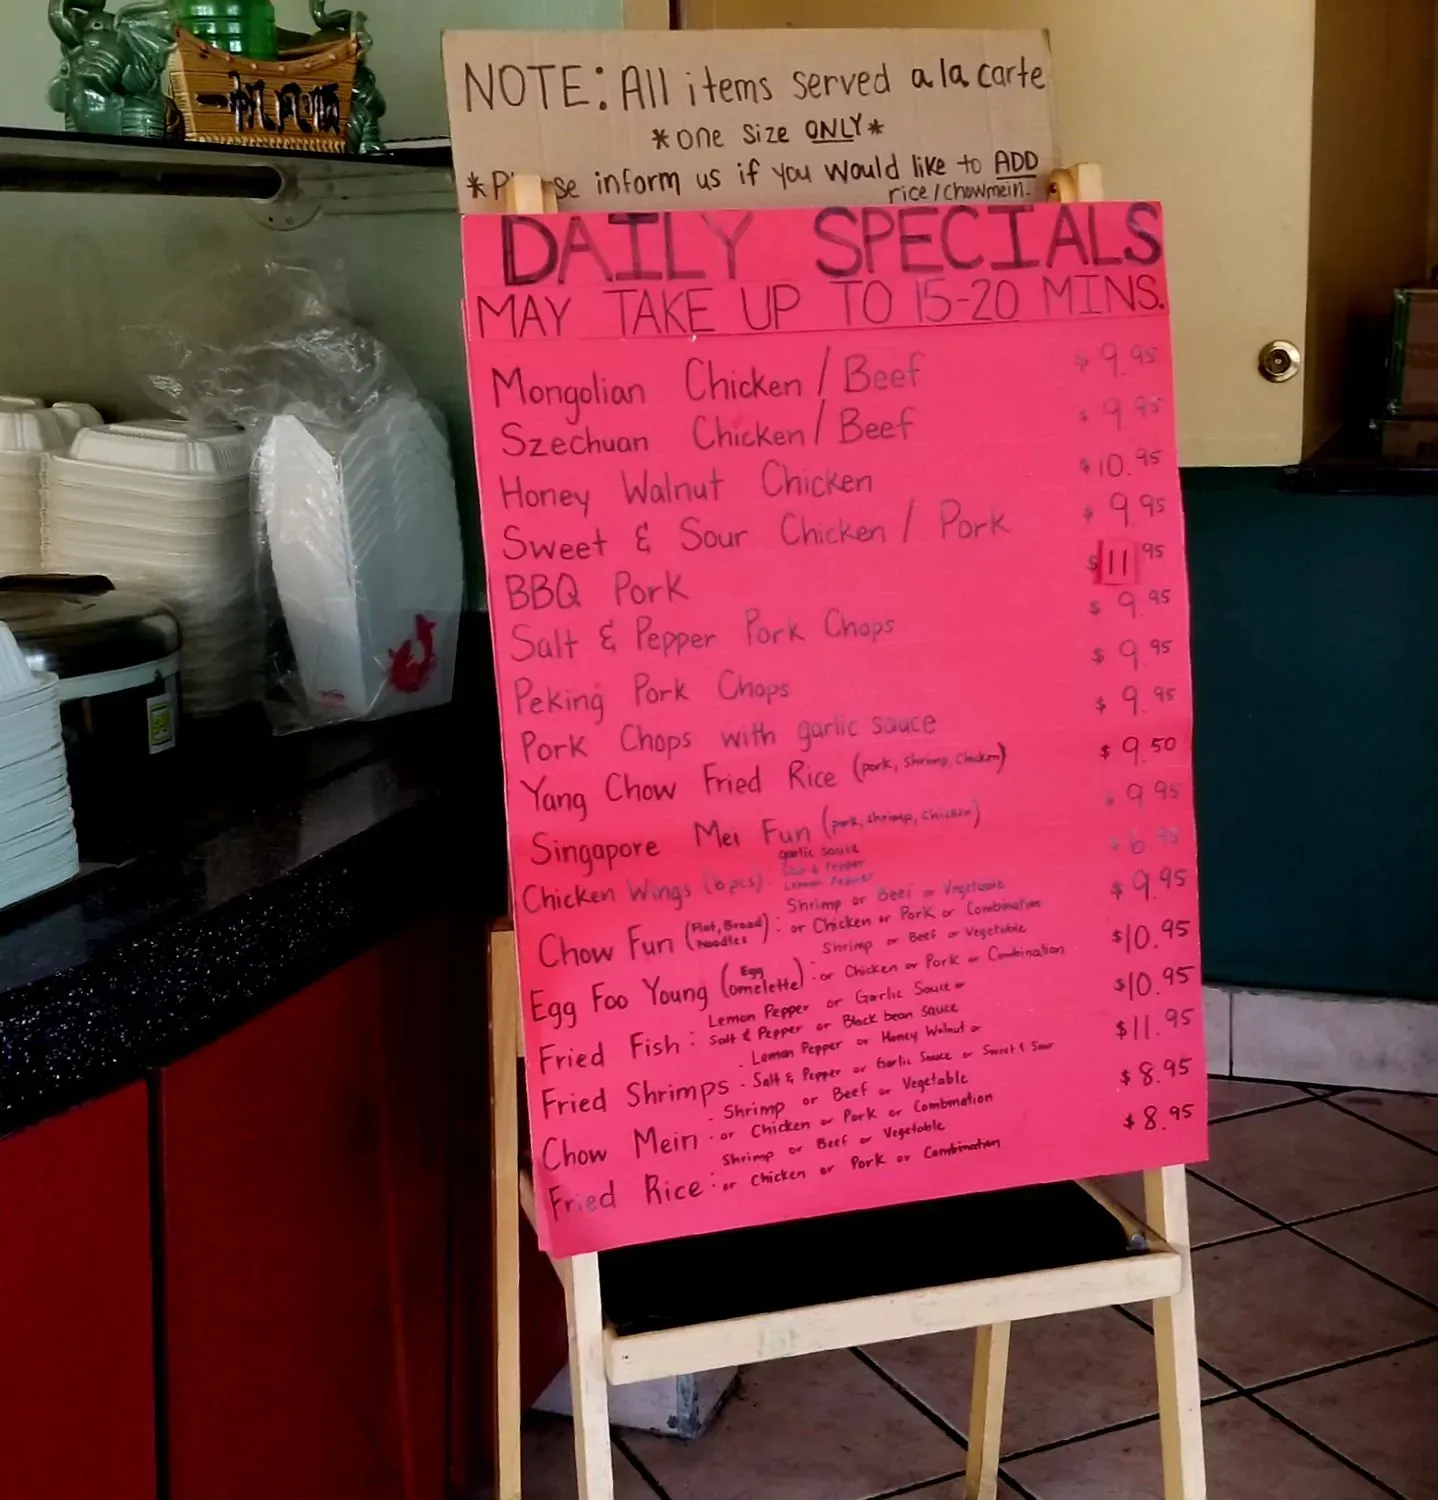 一帆风顺
NOTE: All items served a la carte
*one size ONLY*
*P se inform us if you would like to ADD
rice/chowmein.
DAILY SPECIALS
MAY TAKE UP TO 15-20 MINS.
Mongolian Chicken / Beef $9.95
Szechuan Chicken / Beef $9.95
Honey Walnut Chicken $10.95
Sweet & Sour Chicken / Pork $9.95
BBQ Pork $11.95
Salt & Pepper Pork Chops $9.95
Peking Pork Chops $9.95
Pork Chops with garlic sauce $9.95
Yang Chow Fried Rice (pork, shrimp, chicken) $9.50
Singapore Mei Fun (pork, shrimp, chicken) $9.95
garlic sauce
Salt & Pepper
Chicken Wings (6pcs): Lemon Pepper $6.95
Shrimp or Beef or Vegetable
Chow Fun (Flat, Broad Noodles): or Chicken or Pork or Combination $9.95
Shrimp or Beef or Vegetable
Egg Foo Young (Egg omelette): or Chicken or Pork or Combination $10.95
Lemon Pepper or Garlic Sauce or
Fried Fish: Salt & Pepper or Black bean sauce $10.95
Lemon Pepper or Honey Walnut or
Fried Shrimps: Salt & Pepper or Garlic Sauce or Sweet & Sour $11.95
Shrimp or Beef or Vegetable
Chow Mein: or Chicken or Pork or Combination $8.95
Shrimp or Beef or Vegetable
Fried Rice: or Chicken or Pork or Combination $8.95